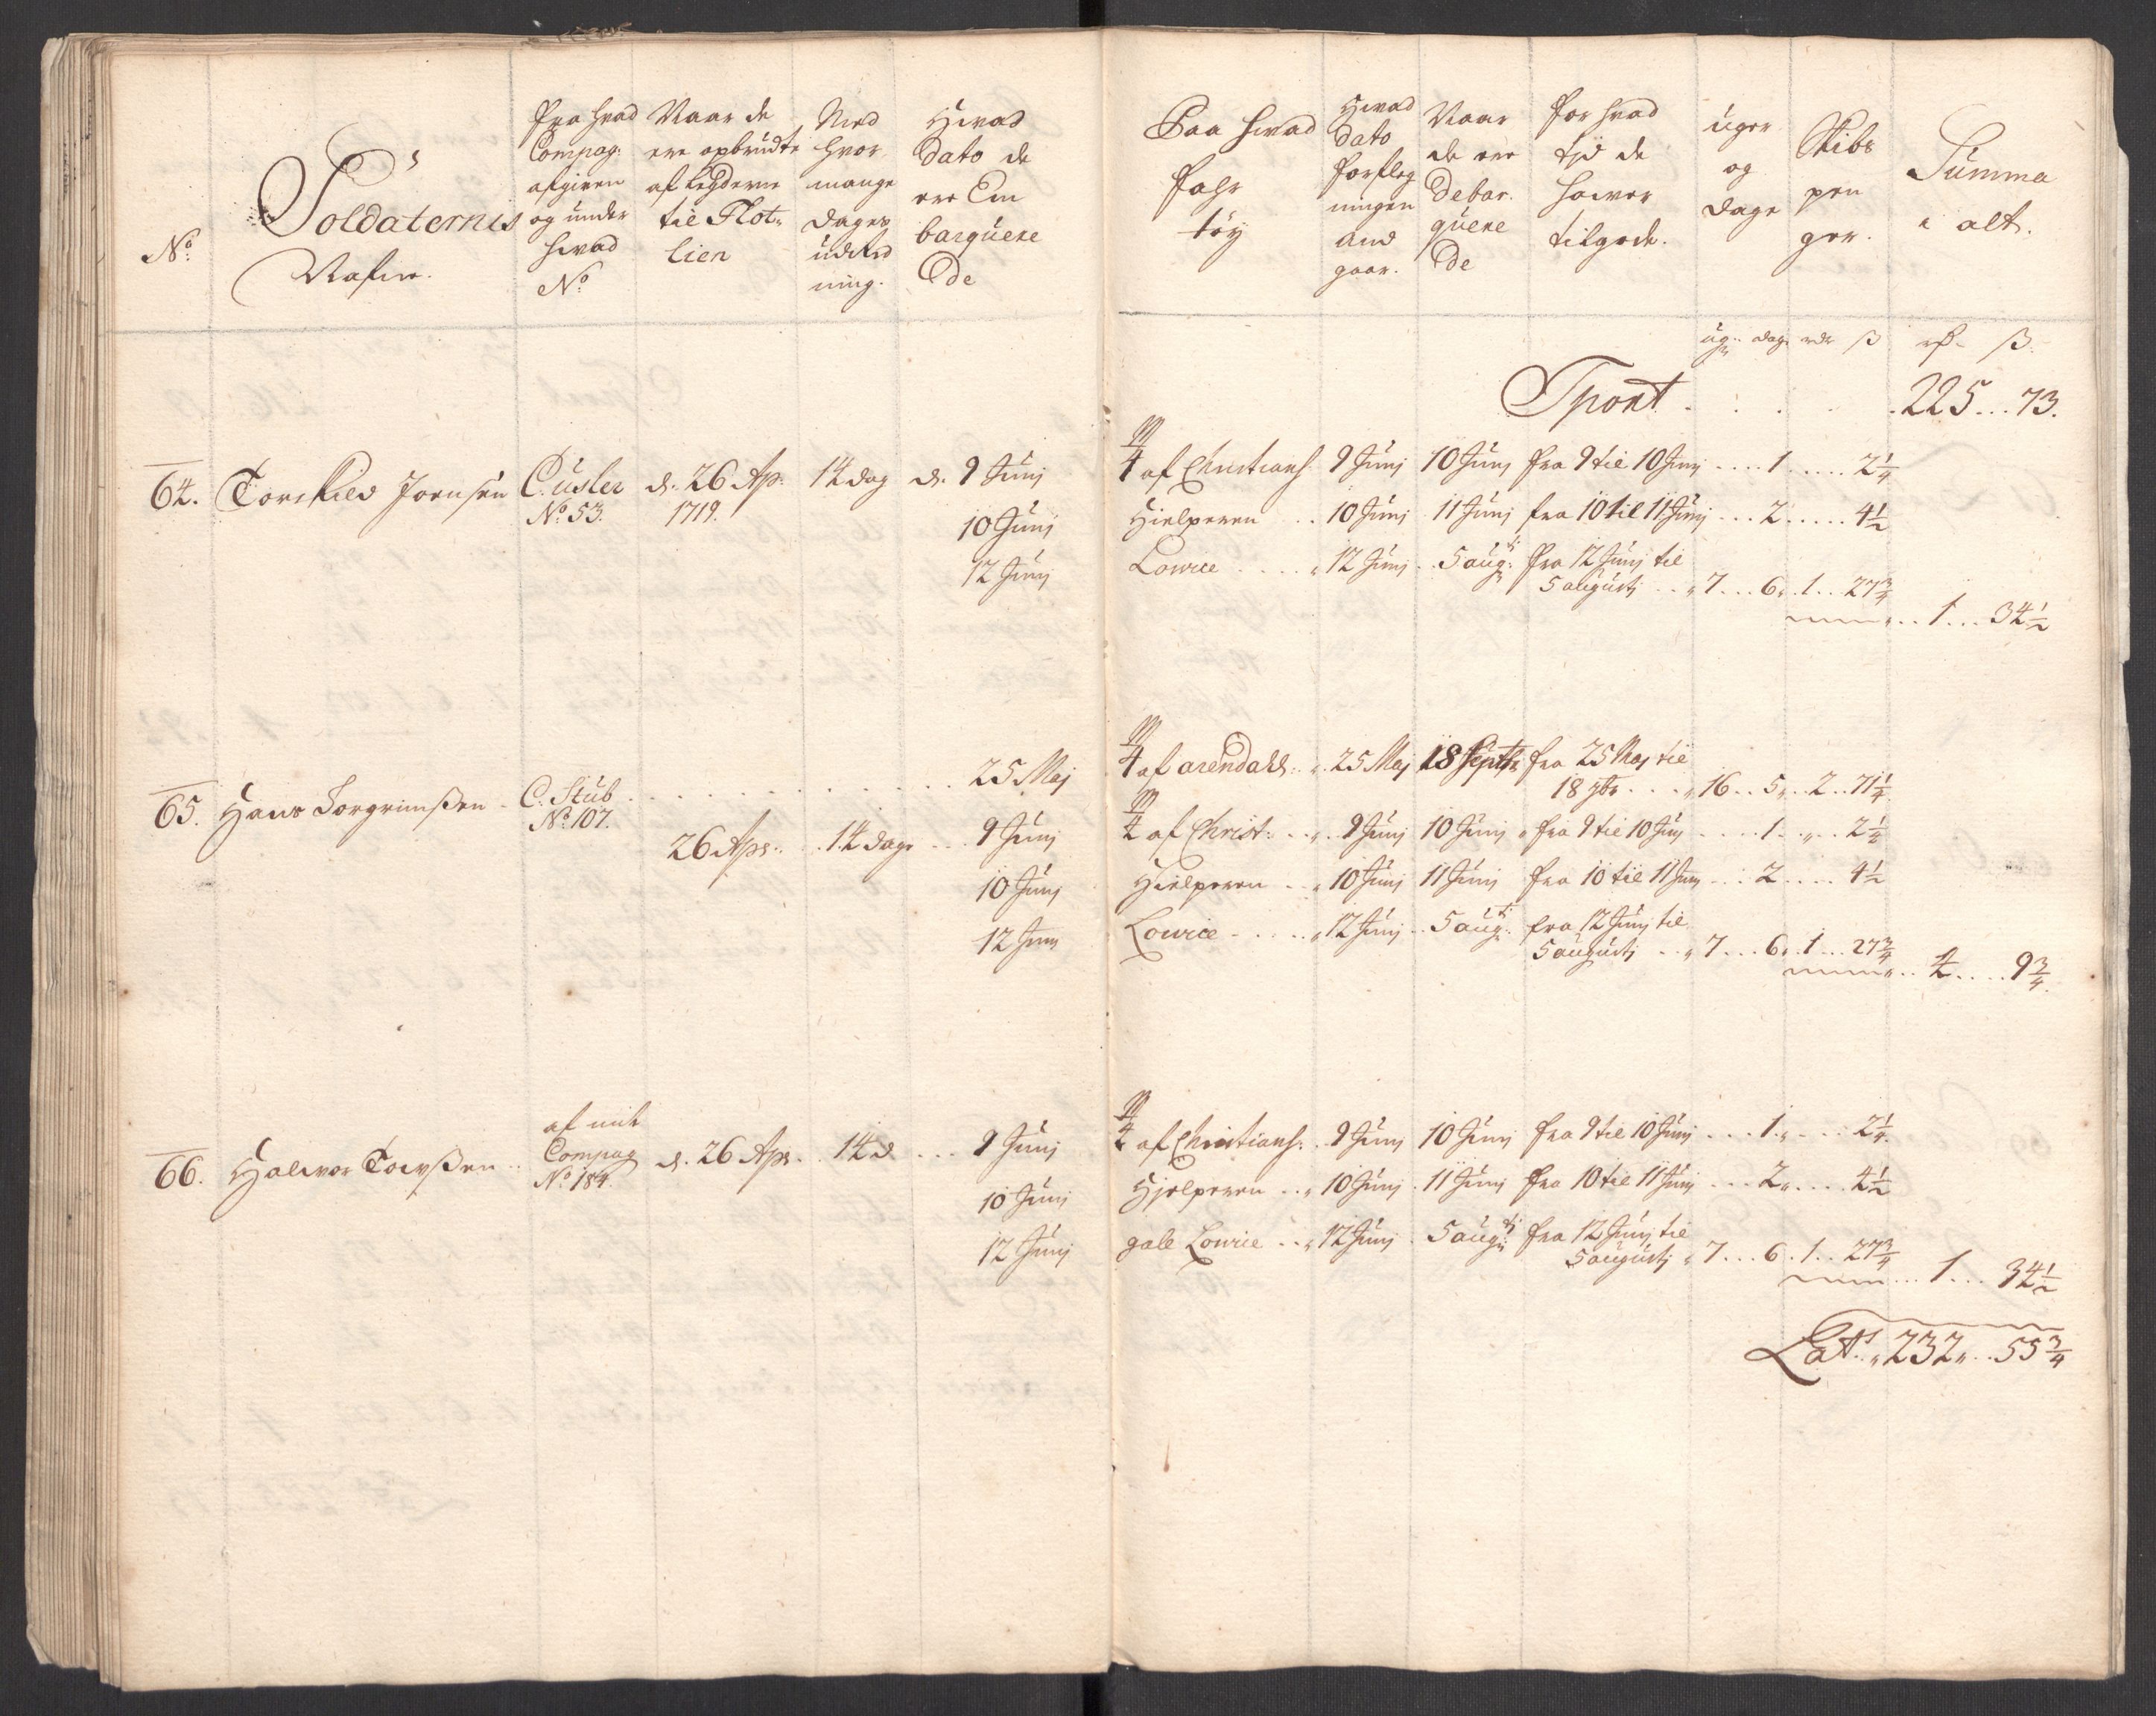 No
Soldaternis
Nafne.
fra hvad
Compag:
afgiven
og under
hvad
No
Naar de
ere opbrudte
af Legderne
til Flot-
lien
Med
hvor
mange
dages
ning.
Hvad
dato de
ere Em
barquere
de
Paa hvad
fahr
töy
Hvad
dato
forfleg
ningen
and
gaar.
Naar
de ere
debar.
quere
de
for hvad
tid de
haver
tilgode.
uger
og
dage
Skibs
pen
ger.
Summa
i alt.
ug: dag rdr ß rd ß
Tport . . . . 225 . . . 73.
64. Torckild Joensen C. Usler d. 26 Ap. 14 dag d. 9 Junj
No 53. 1719.
10 Junj
12 Junj
4 af Christians. 9 Junj 10 Junj fra 9 til 10 Junj . . . . 1 . . . . . 2 1/4
Hielperen . . 10 Junj 11 Junj fra 10 til 11 Junj . . . 2 . . . . . 4 1/2
Lowice . . . . 12 Junj . 5 aug: fra 12 Junj til
5 augusti . . 7 . . . 6 . 1 . . 27 3/4
. . 1 . . . 34 1/2
65. Hans Torgrimßen - C. Stub . . . . . . . . . . . . 25 Maj
No 107.
26 Apr. . . 14 dage . . . 9 Junj
10 Junj
12 Junj
4 af arendahl: . . 25 Maj 18 Septbr fra 25 Maj til
18 7br . . . 16 . . 5 . . 2 . . 71 1/4
4 af Christ: . . . 9 Junj 10 Junj fra 9 til 10 Junj . . . . 1 . . . 2 1/4
Hielperen . . 10 Junj 11 Junj fra 10 til 11 Junj . . : 2 . . . . 4 1/2
Lowice . . . . . 12 Junj . . 5 aug: fra 12 Junj til
5 augusti . . 7 . . . 6 . 1 . . . 27 3/4
. . 4 . . . . 9 3/4
66. Halvor Towßen . . af mit
Compag d. 26 Apr. . 14 d . . . 9 Junj
No 184.
10 Junj
12 Junj
4 af Christians: . 9 Junj 10 Junj fra 9 til 10 Junj . . . 1 . . . . 2 1/4
Hjelperen . . 10 Junj . 11 Junj fra 10 til 11 Junj . . . 2 . . . . 4 1/2
gale Lowice . . 12 Junj . 5 aug: fra 12 Junj til
5 augusti 7 . . . 6 . 1 . . 27 3/4
. . . 1 . . . 34 1/2
Lats 232 . . 55 3/4